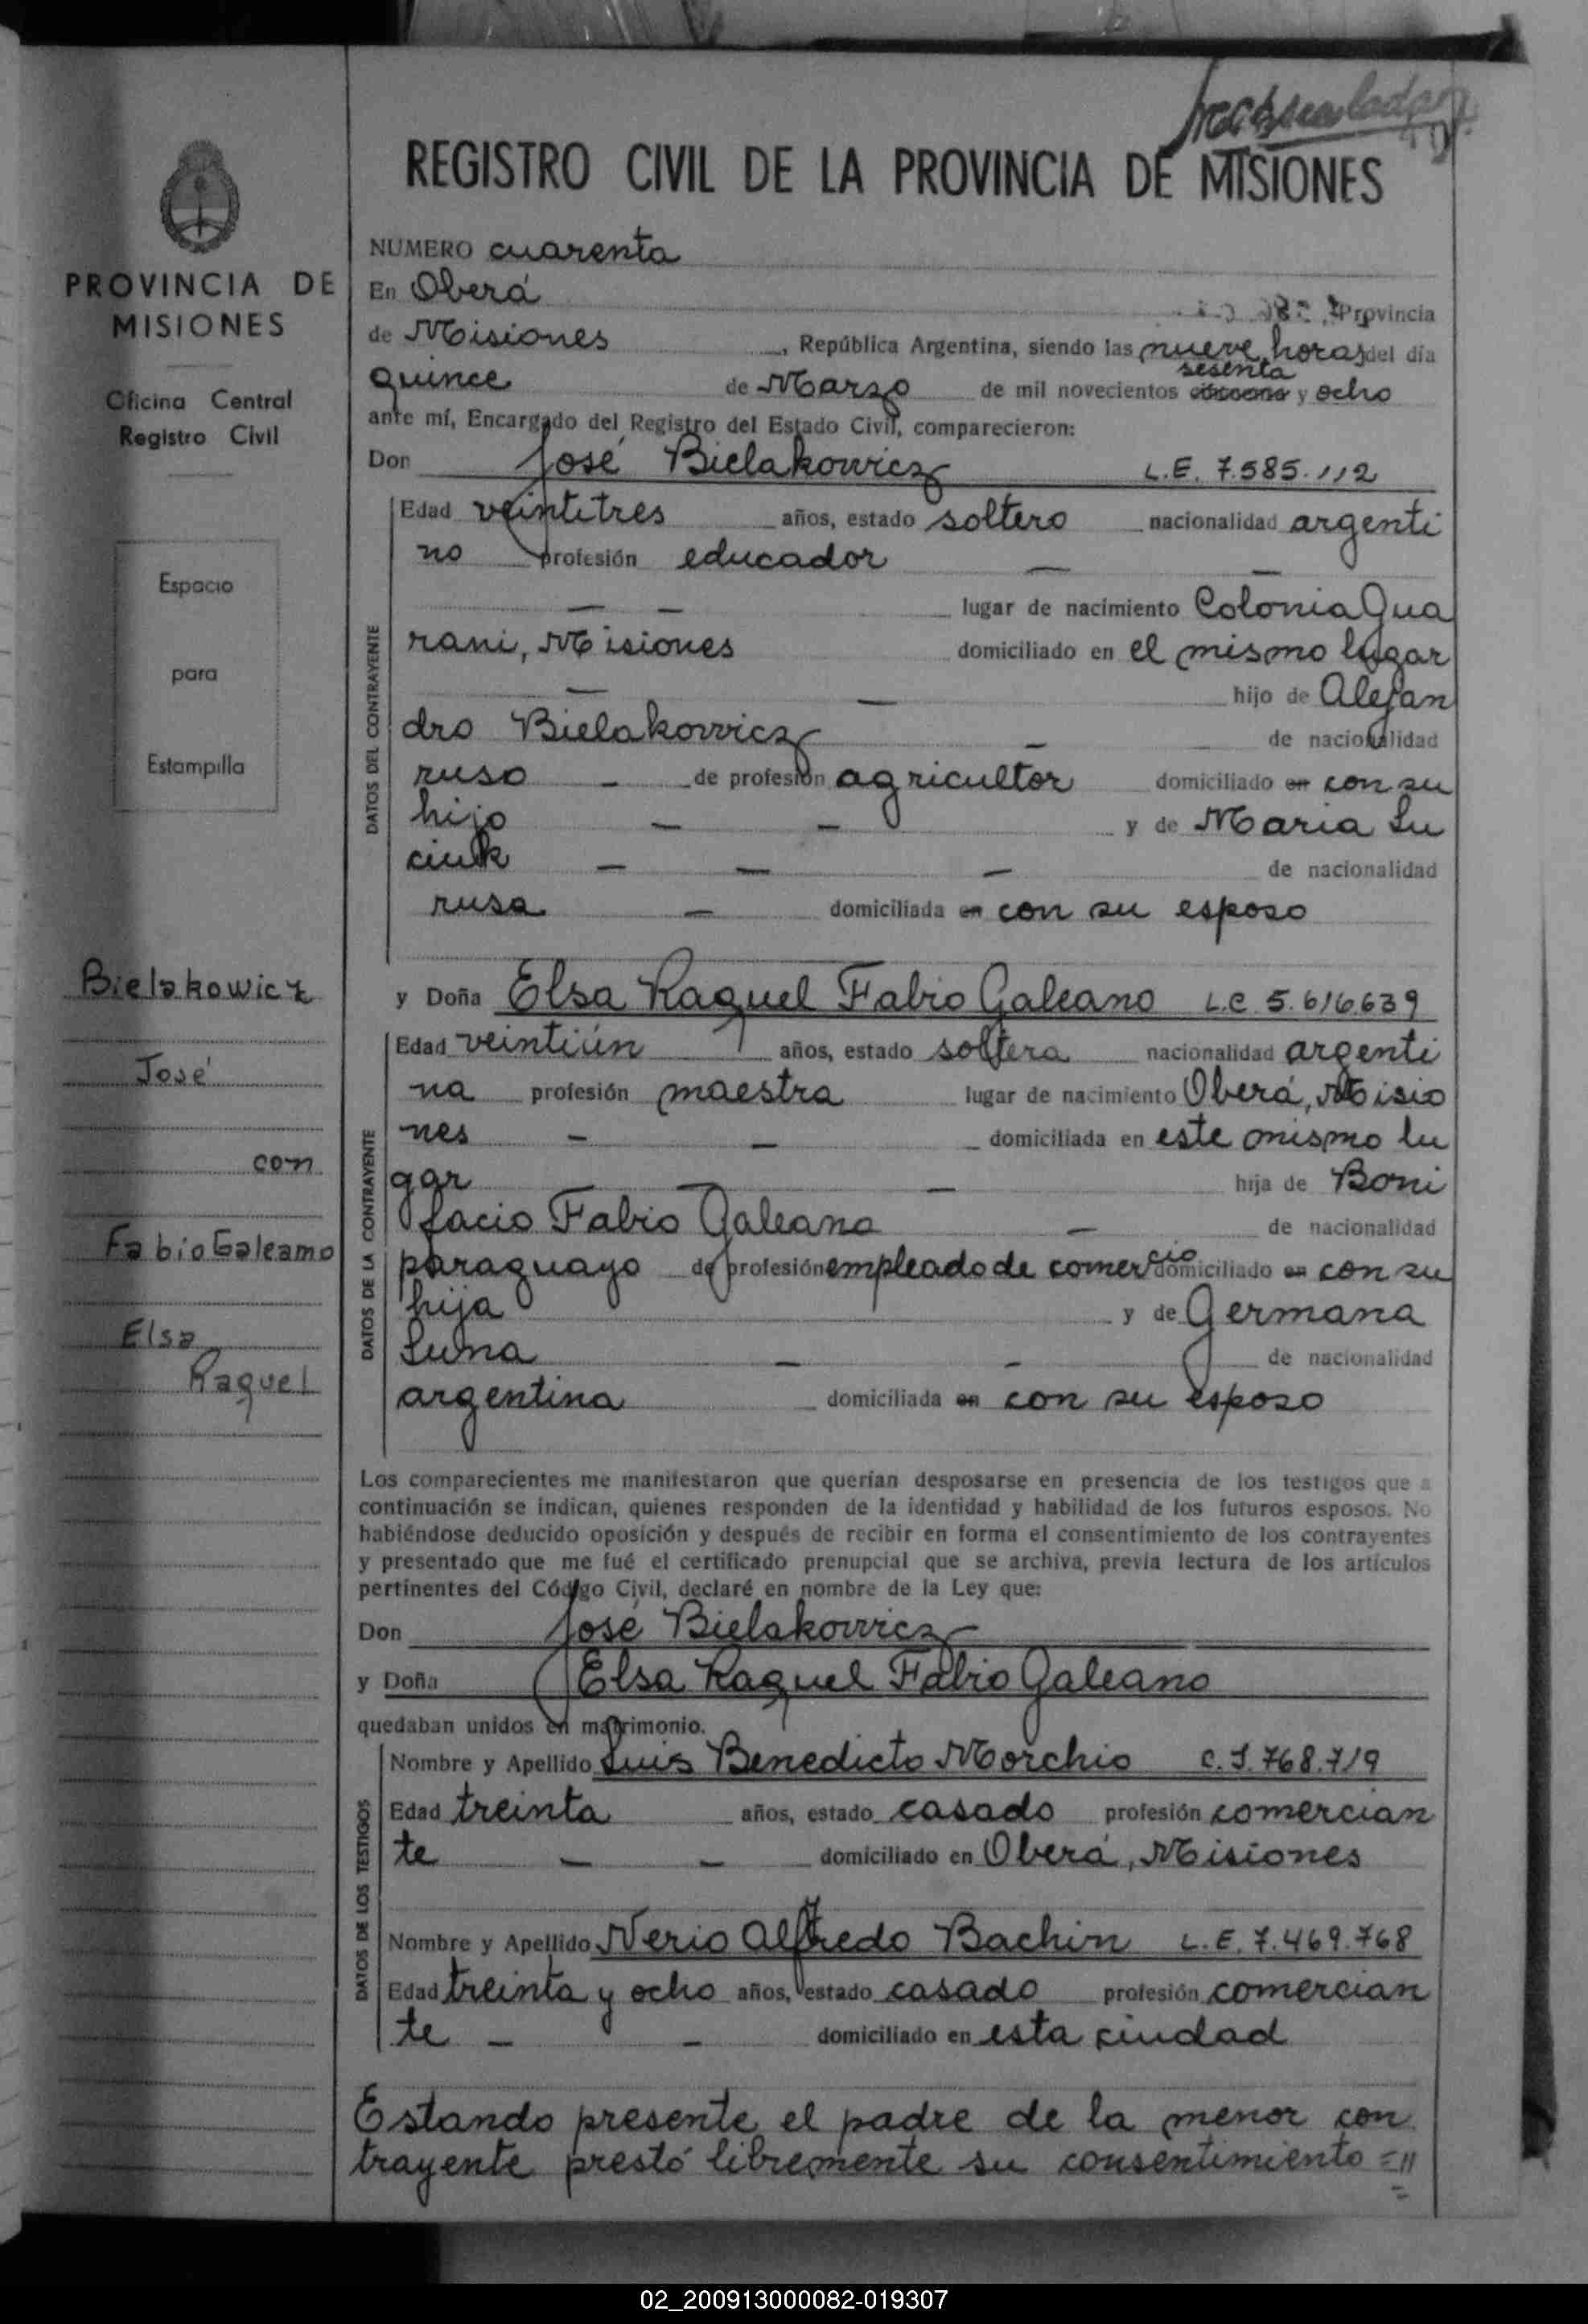 REGISTRO CIVIL DE LA PROVINCIA DE MISIONES
PROVINCIA DE
MISIONES
Oficina Central
Registro Civil
Espacio
para
Estampilla
Bielakowicz
José
con
Fabio Galeano
Elsa
Raquel
NUMERO cuarenta
En Oberá Provincia
de Misiones, República Argentina, siendo las nueve horas del día
sesenta
quince de Marzo de mil novecientos y ocho
ante mí, Encargado del Registro del Estado Civil, comparecieron:
Don José Bielakowicz L.E. 7.585.112
DATOS DEL CONTRAYENTE
Edad veintitres años, estado soltero nacionalidad argenti
no profesión educador — —
— — lugar de nacimiento Colonia Gua
rani, Misiones domiciliado en el mismo lugar
— — hijo de Alejan
dro Bielakowicz — de nacionalidad
ruso — de profesión agricultor domiciliado en con su
hijo — — y de Maria Lu
ciuk — — — de nacionalidad
rusa — domiciliada en con su esposo
y Doña Elsa Raquel Fabio Galeano L.C 5.616.639
DATOS DE LA CONTRAYENTE
Edad veintiún años, estado soltera nacionalidad argenti
na profesión maestra lugar de nacimiento Oberá, Misio
nes — — domiciliada en este mismo lu
gar — — hija de Boni
facio Fabio Galeano — de nacionalidad
paraguayo de profesión empleado de comercio domiciliado en con su
hija y de Germana
Luna — — de nacionalidad
argentina domiciliada en con su esposo
Los comparecientes me manifestaron que querían desposarse en presencia de los testigos que a
continuación se indican, quienes responden de la identidad y habilidad de los futuros esposos. No
habiéndose deducido oposición y después de recibir en forma el consentimiento de los contrayentes
y presentado que me fué el certificado prenupcial que se archiva, previa lectura de los artículos
pertinentes del Código Civil, declaré en nombre de la Ley que:
Don José Bielakowicz
y Doña Elsa Raquel Fabio Galeano
quedaban unidos en matrimonio.
DATOS DE LOS TESTIGOS
Nombre y Apellido Luis Benedicto Morchio C.I. 768.719
Edad treinta años, estado casado profesión comercian
te — — domiciliado en Oberá, Misiones
Nombre y Apellido Nerio Alfredo Bachin L.E. 7.469.768
Edad treinta y ocho años, estado casado profesión comercian
te — — domiciliado en esta ciudad
Estando presente el padre de la menor con
trayente prestó libremente su consentimiento =//=
02_200913000082-019307